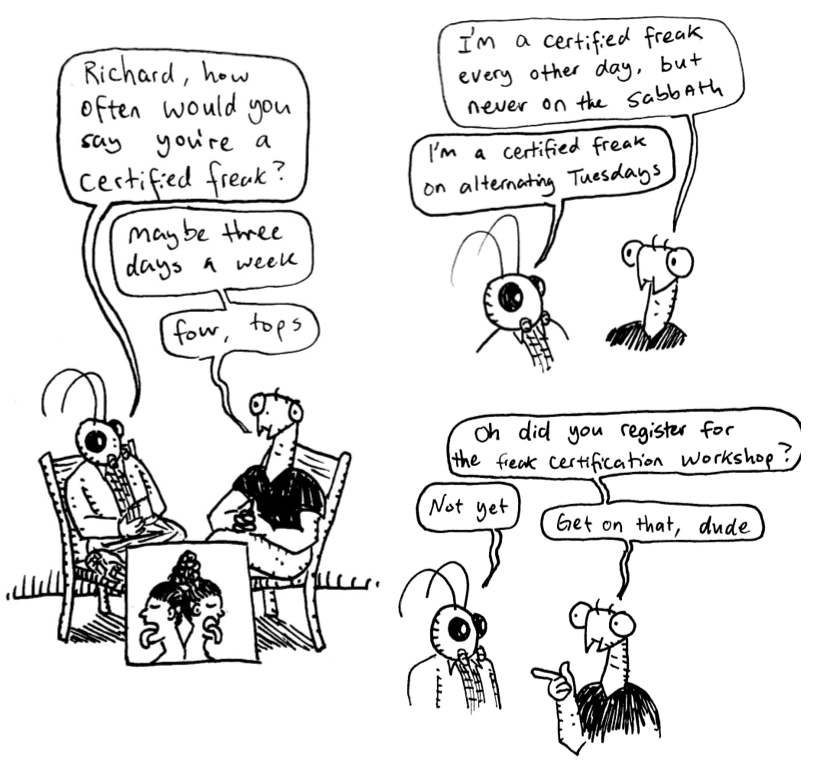 Richard, how
often would you
say you're a
certified freak?
maybe three
days a week
four, tops
I'm a certified freak
every other day, but
never on the sabbath
I'm a certified freak
on alternating Tuesdays
Oh did you register for
the freak certification workshop?
Not yet
Get on that, dude